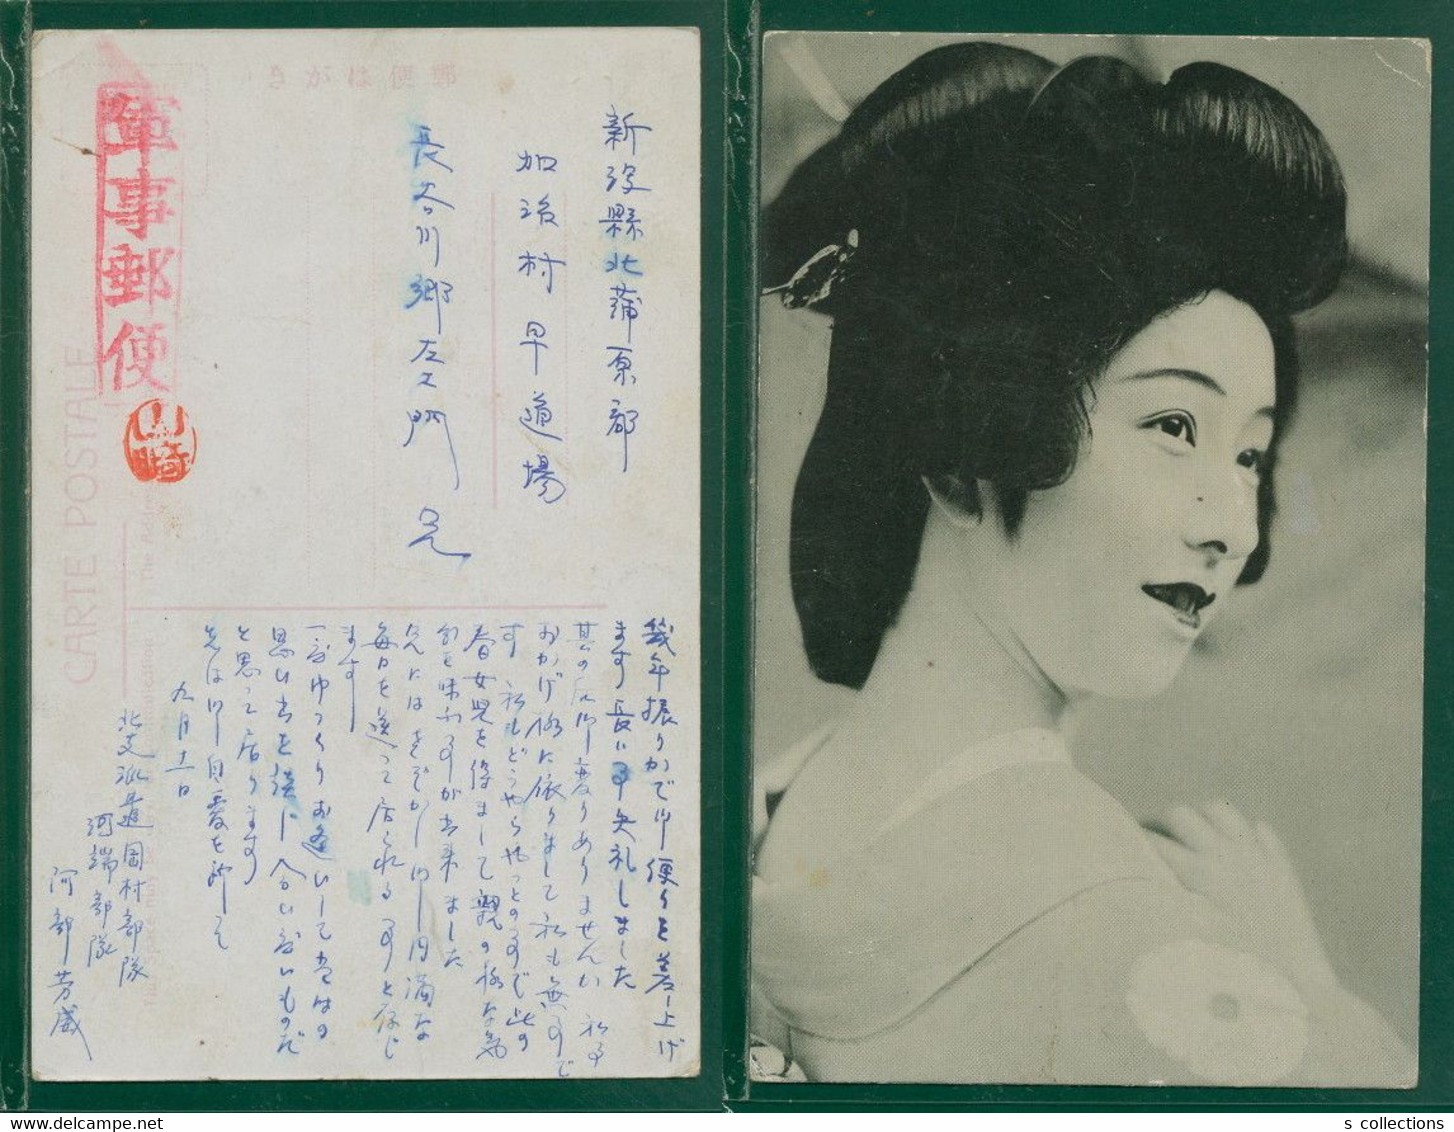 郵便はがき
軍事郵便
山崎
CARTE POSTALE
新潟縣北蒲原郡
加治村早道場
長谷川郷左エ門兄
幾年振りかで御便りを差上げ
ます長い事失礼しました
其の后御変りありませんか 私事
おかげ様に依りまして私も無事で
す 私もどうやらやっとの事で此の
春女児を得まして親の様な気
分を味ふ事が出来ました
兄にはさぞかし御円満な
毎日を送って居られる事と存じ
ます
一度ゆっくりお逢いして
思い出を談
と思って居ります
先は御自愛を祈って
九月十一日
北支派遣岡村部隊
河端部隊
阿部芳盛
s collections